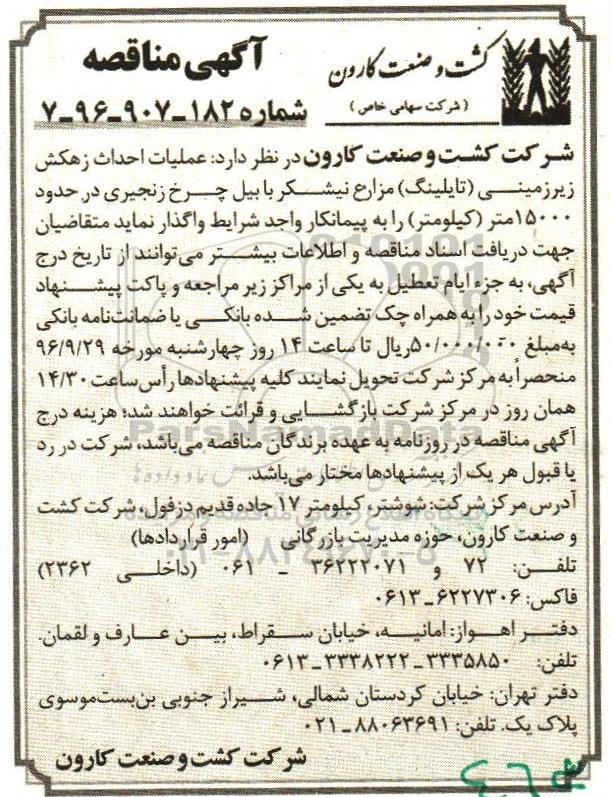 کشت و صنعت کارون
(شرکت سهامی خاص)
آگهی مناقصه
شماره ۱۸۲-۹۰۷-۹۶-۷
شرکت کشت و صنعت کارون در نظر دارد: عملیات احداث زهکش
زیرزمینی (تایلینگ) مزارع نیشکر با بیل چرخ زنجیری در حدود
۱۵۰۰۰متر (کیلومتر) را به پیمانکار واجد شرایط واگذار نماید متقاضیان
جهت دریافت اسناد مناقصه و اطلاعات بیشتر می‌توانند از تاریخ درج
آگهی، به جزء ایام تعطیل به یکی از مراکز زیر مراجعه و پاکت پیشنهاد
قیمت خود را به همراه چک تضمین شده بانکی یا ضمانت‌نامه بانکی
به‌مبلغ ۵۰/۰۰۰/۰۰۰ریال تا ساعت ۱۴ روز چهارشنبه مورخه ۹۶/۹/۲۹
منحصراً به مرکز شرکت تحویل نمایند کلیه پیشنهادها رأس‌ساعت ۱۴/۳۰
همان روز در مرکز شرکت بازگشایی و قرائت خواهند شد؛ هزینه درج
آگهی مناقصه در روزنامه به عهده برندگان مناقصه می‌باشد، شرکت در رد
یا قبول هر یک از پیشنهادها مختار می‌باشد.
آدرس مرکز شرکت: شوشتر، کیلومتر ۱۷ جاده قدیم دزفول، شرکت کشت
و صنعت کارون، حوزه مدیریت بازرگانی (امور قراردادها)
تلفن: ۷۲ و ۳۶۲۲۲۰۷۱ - ۰۶۱ (داخلی ۲۳۶۲)
فاکس: ۶۲۲۷۳۰۶-۰۶۱۳
دفتر اهواز: امانیه، خیابان سقراط، بین عارف و لقمان.
تلفن: ۳۳۳۵۸۵۰-۳۳۳۸۲۲۲-۰۶۱۳
دفتر تهران: خیابان کردستان شمالی، شیراز جنوبی بن‌بست‌موسوی
پلاک یک. تلفن: ۸۸۰۶۳۶۹۱-۰۲۱
شرکت کشت و صنعت کارون
ParsNamadData